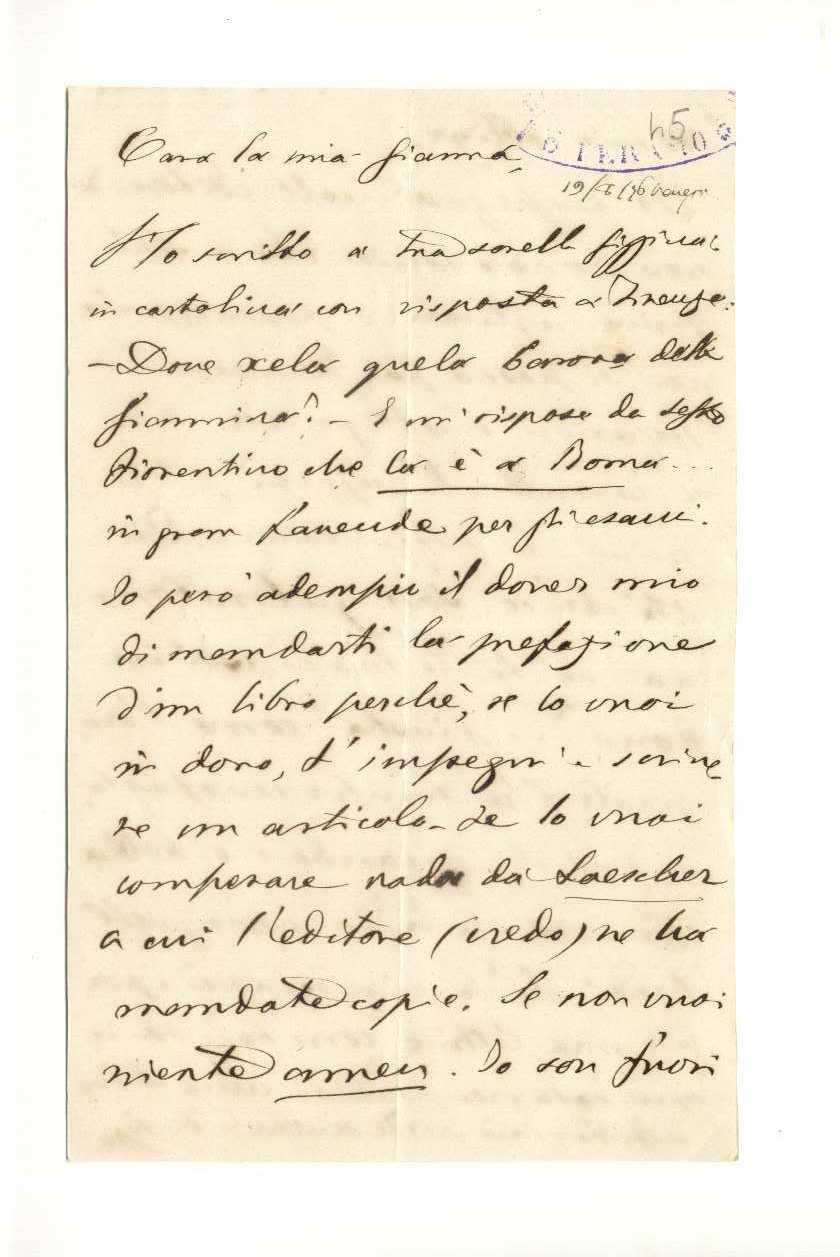 Cara la mia Gianna,
45
19/
Ho scritto a tua sorella Gippina
in cartolina con risposta a Firenze:
– Dove xela quela barona della
Giannina? – E mi rispose da Sesto
Fiorentino che la è a Roma...
in gran faccende per gli esami.
Io però adempio il dover mio
di mandarti la prefazione
d'un libro perchè, se lo vuoi
in dono, t'impegni a scrive-
re un articolo – Se lo vuoi
comperare vada da Loescher
a cui l'editore (credo) ne ha
mandate copie. Se non vuoi
niente amen. Io son fuori